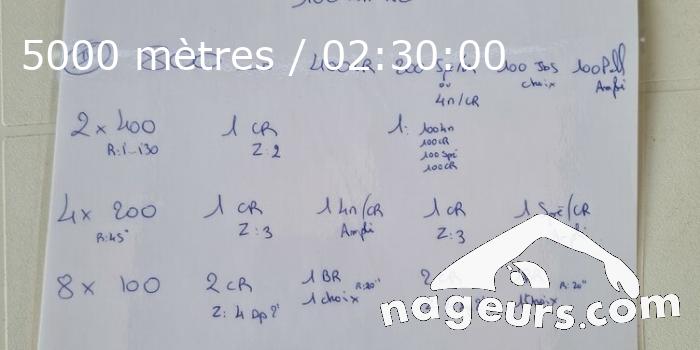 5000 mètres / 02:30:00
400CR 200 Spé/N 100 Jbs 100 Pull
ou choix Ampli
4n/CR
2 x 400 1 CR 1: 100 4n
R: 1-130 Z: 2 100CR
100 Spé
100CR
4 x 200 1 CR 1 4n/CR 1 CR 1 Spé/CR
R: 45" Z: 3 Ampli Z: 3
8 x 100 2 CR 1 BR R:20" R:20"
Z: 4 Dp 2' 1 choix 1 choix
nageurs.com